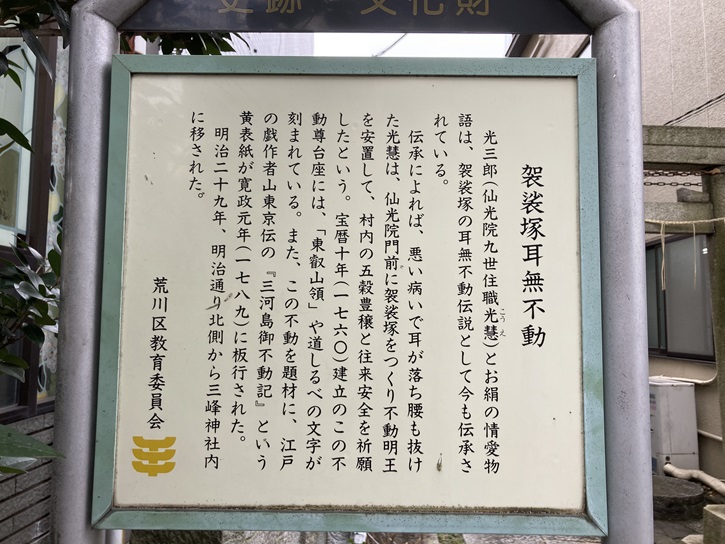 史跡 文化財
袈裟塚耳無不動
光三郎(仙光院九世住職光慧)とお絹の情愛物
こうえ
語は、袈裟塚の耳無不動伝説として今も伝承さ
れている。
伝承によれば、悪い病いで耳が落ち腰も抜け
た光慧は、仙光院門前に袈裟塚をつくり不動明王
を安置して、村内の五穀豊穣と往来安全を祈願
したという。宝暦十年(一七六〇)建立のこの不
動尊台座には、「東叡山領」や道しるべの文字が
刻まれている。また、この不動を題材に、江戸
の戯作者山東京伝の『三河島御不動記』という
黄表紙が寛政元年(一七八九)に板行された。
明治二十九年、明治通り北側から三峰神社内
に移された。
荒川区教育委員会